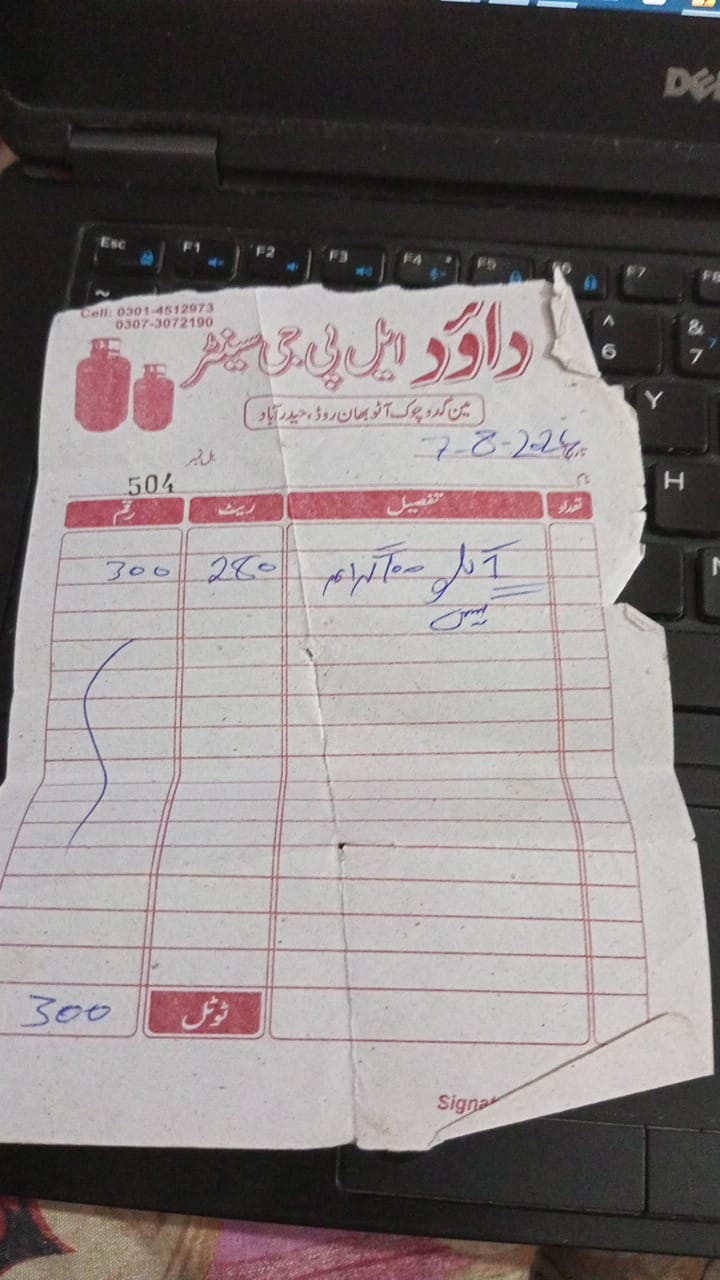 DELL
Esc F1 F2 F3 F4 F5 F6 F7 F8
~
^ 6
& 7
Y
H
N
Cell: 0301-4512973
0307-3072190
داؤد ایل پی جی سینٹر
مین گدو چوک آٹو بھان روڈ، حیدرآباد
7-8-224
بل نمبر
504
نام
تعداد تفصیل ریٹ رقم
گرام 280 300
گیس
ٹوٹل 300
Signat